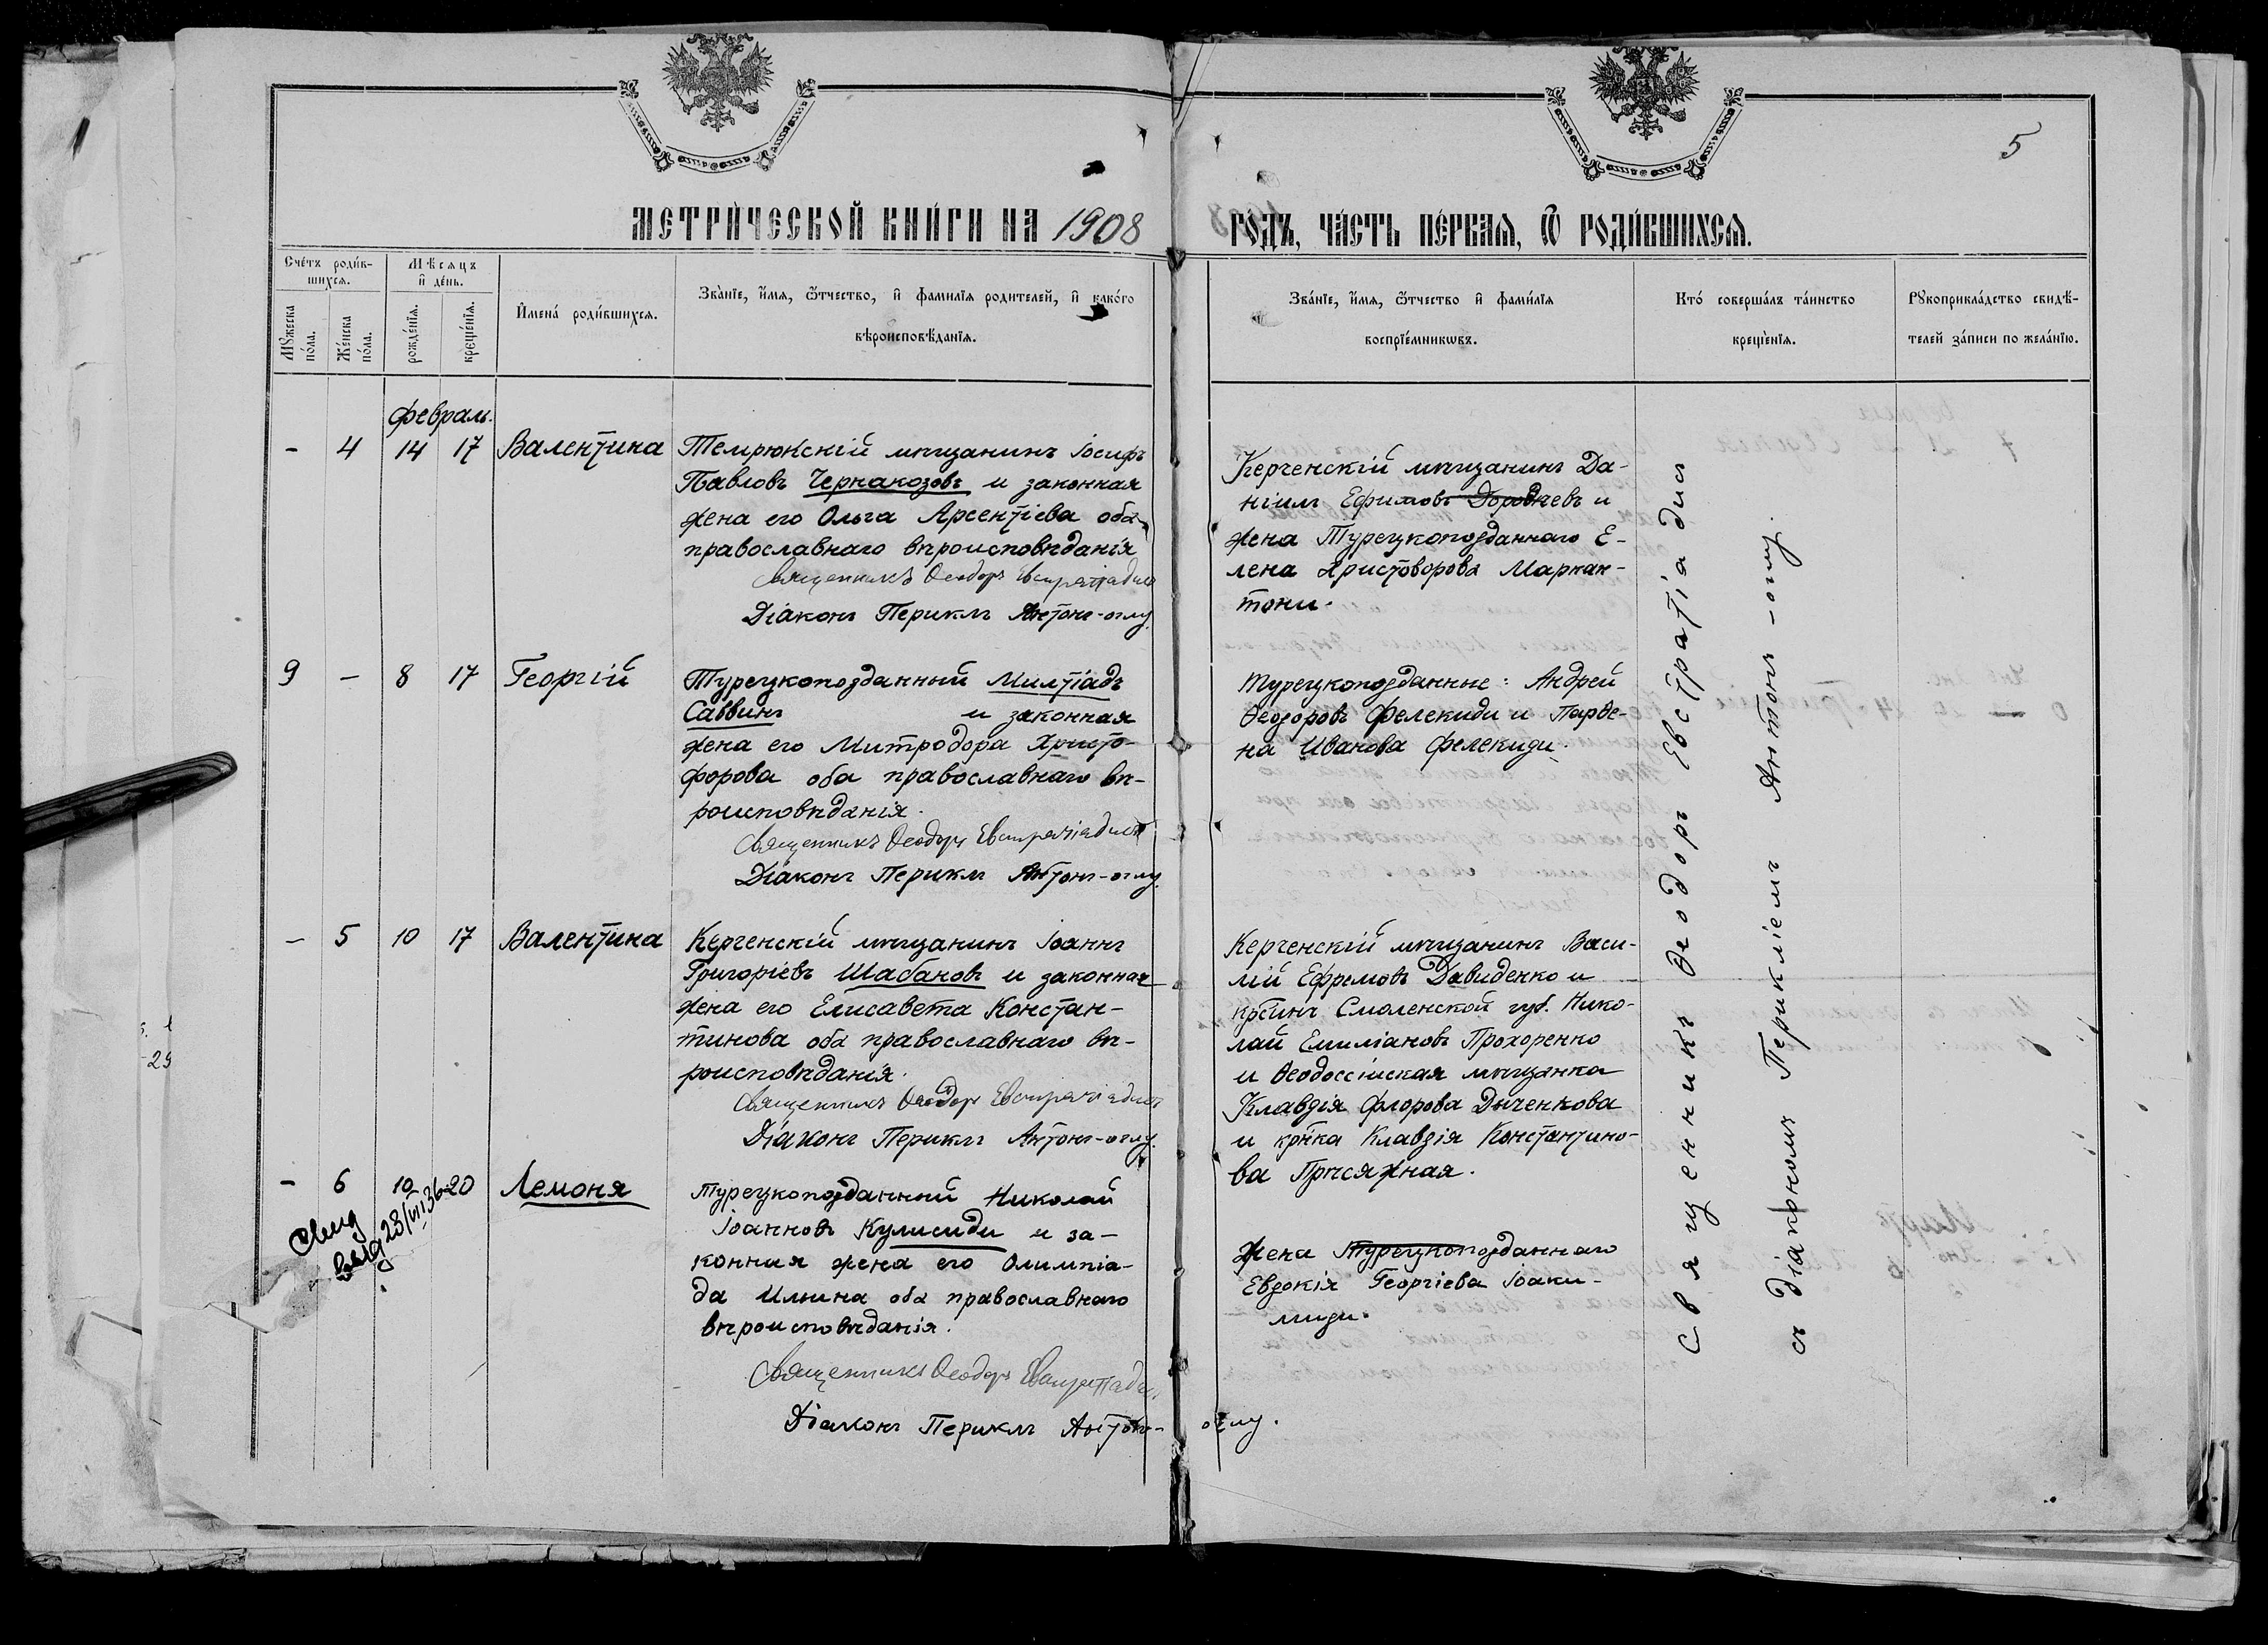 5
МЕТРИ́ЧЕСКОЙ КНИ́ГИ НА 1908
ГО́ДЪ, ЧА́СТЬ ПЕ́РВАЯ, Ѿ РОДИ́ВШИХСЯ.
Сче́тъ роди́в-
шихся.
Мѣ́сяцъ
и҆ де́нь.
Мꙋ́жеска
по́ла.
Же́нска
по́ла.
рожде́нїя.
креще́нїя.
И҆мена̀ роди́вшихся.
Зва́нїе, и҆́мя, ѻ҆́тчество, и҆ фами́лїя роди́телей, и҆ како́го
вѣроисповѣ́данїя.
Зва́нїе, и҆́мя, ѻ҆́тчество и҆ фами́лїя
воспрїе́мникωвъ.
Кто́ соверша́лъ та́инство
креще́нїя.
Рꙋкоприкла́дство свидѣ́-
телей за́писи по жела́нїю.
Февраль.
- 4 14 17 Валентина
Темрюкскій мѣщанинъ Іосифъ
Павловъ Чернакозовъ и законная
жена его Ольга Арсентіева оба
православнаго вѣроисповѣданія
Священникъ Ѳеодоръ Евстратіадисъ
Діаконъ Периклъ Антонъ-оглу.
Керченскій мѣщанинъ Да-
ніилъ Ефимовъ Доровѣевъ и
жена Турецкоподданнаго Е-
лена Христофорова Маркан-
тони.
9 - 8 17 Георгій
Турецкоподданный Милтіадъ
Саввинъ и законная
жена его Митродора Христо-
форова оба православнаго вѣ-
роисповѣданія.
Священникъ Ѳеодоръ Евстратіадисъ
Діаконъ Периклъ Антонъ-оглу.
Турецкоподданные: Андрей
Ѳеодоровъ Фелекиди и Парѳе-
на Иванова Фелекиди.
- 5 10 17 Валентина
Керченскій мѣщанинъ Іоаннъ
Григоріевъ Шабановъ и законная
жена его Елисавета Констан-
тинова оба православнаго вѣ-
роисповѣданія.
Священникъ Ѳеодоръ Евстратіадисъ
Діаконъ Периклъ Антонъ-оглу.
Керченскій мѣщанинъ Васи-
лій Ефремовъ Давиденко и
крстинъ Смоленской губ. Нико-
лай Емиліановъ Прохоренко
и Ѳеодоссійская мѣщанка
Клавдія Флорова Дьяченкова
и кр̃нка Клавдія Константино-
ва Присяжная.
- 6 10 20 Лемоня
Свид
выд 28/VII 36
Турецкоподданный Николай
Іоанновъ Кулисиди и за-
конная жена его Олимпіа-
да Ильина оба православнаго
вѣроисповѣданія.
Священникъ Ѳеодоръ Евстратіадисъ
Діаконъ Периклъ Антонъ-оглу.
Жена Турецкоподданнаго
Евдокія Георгіева Іоаки-
миди.
Священникъ Ѳеодоръ Евстратіадисъ
съ діакономъ Перикліемъ Антонъ-оглу.